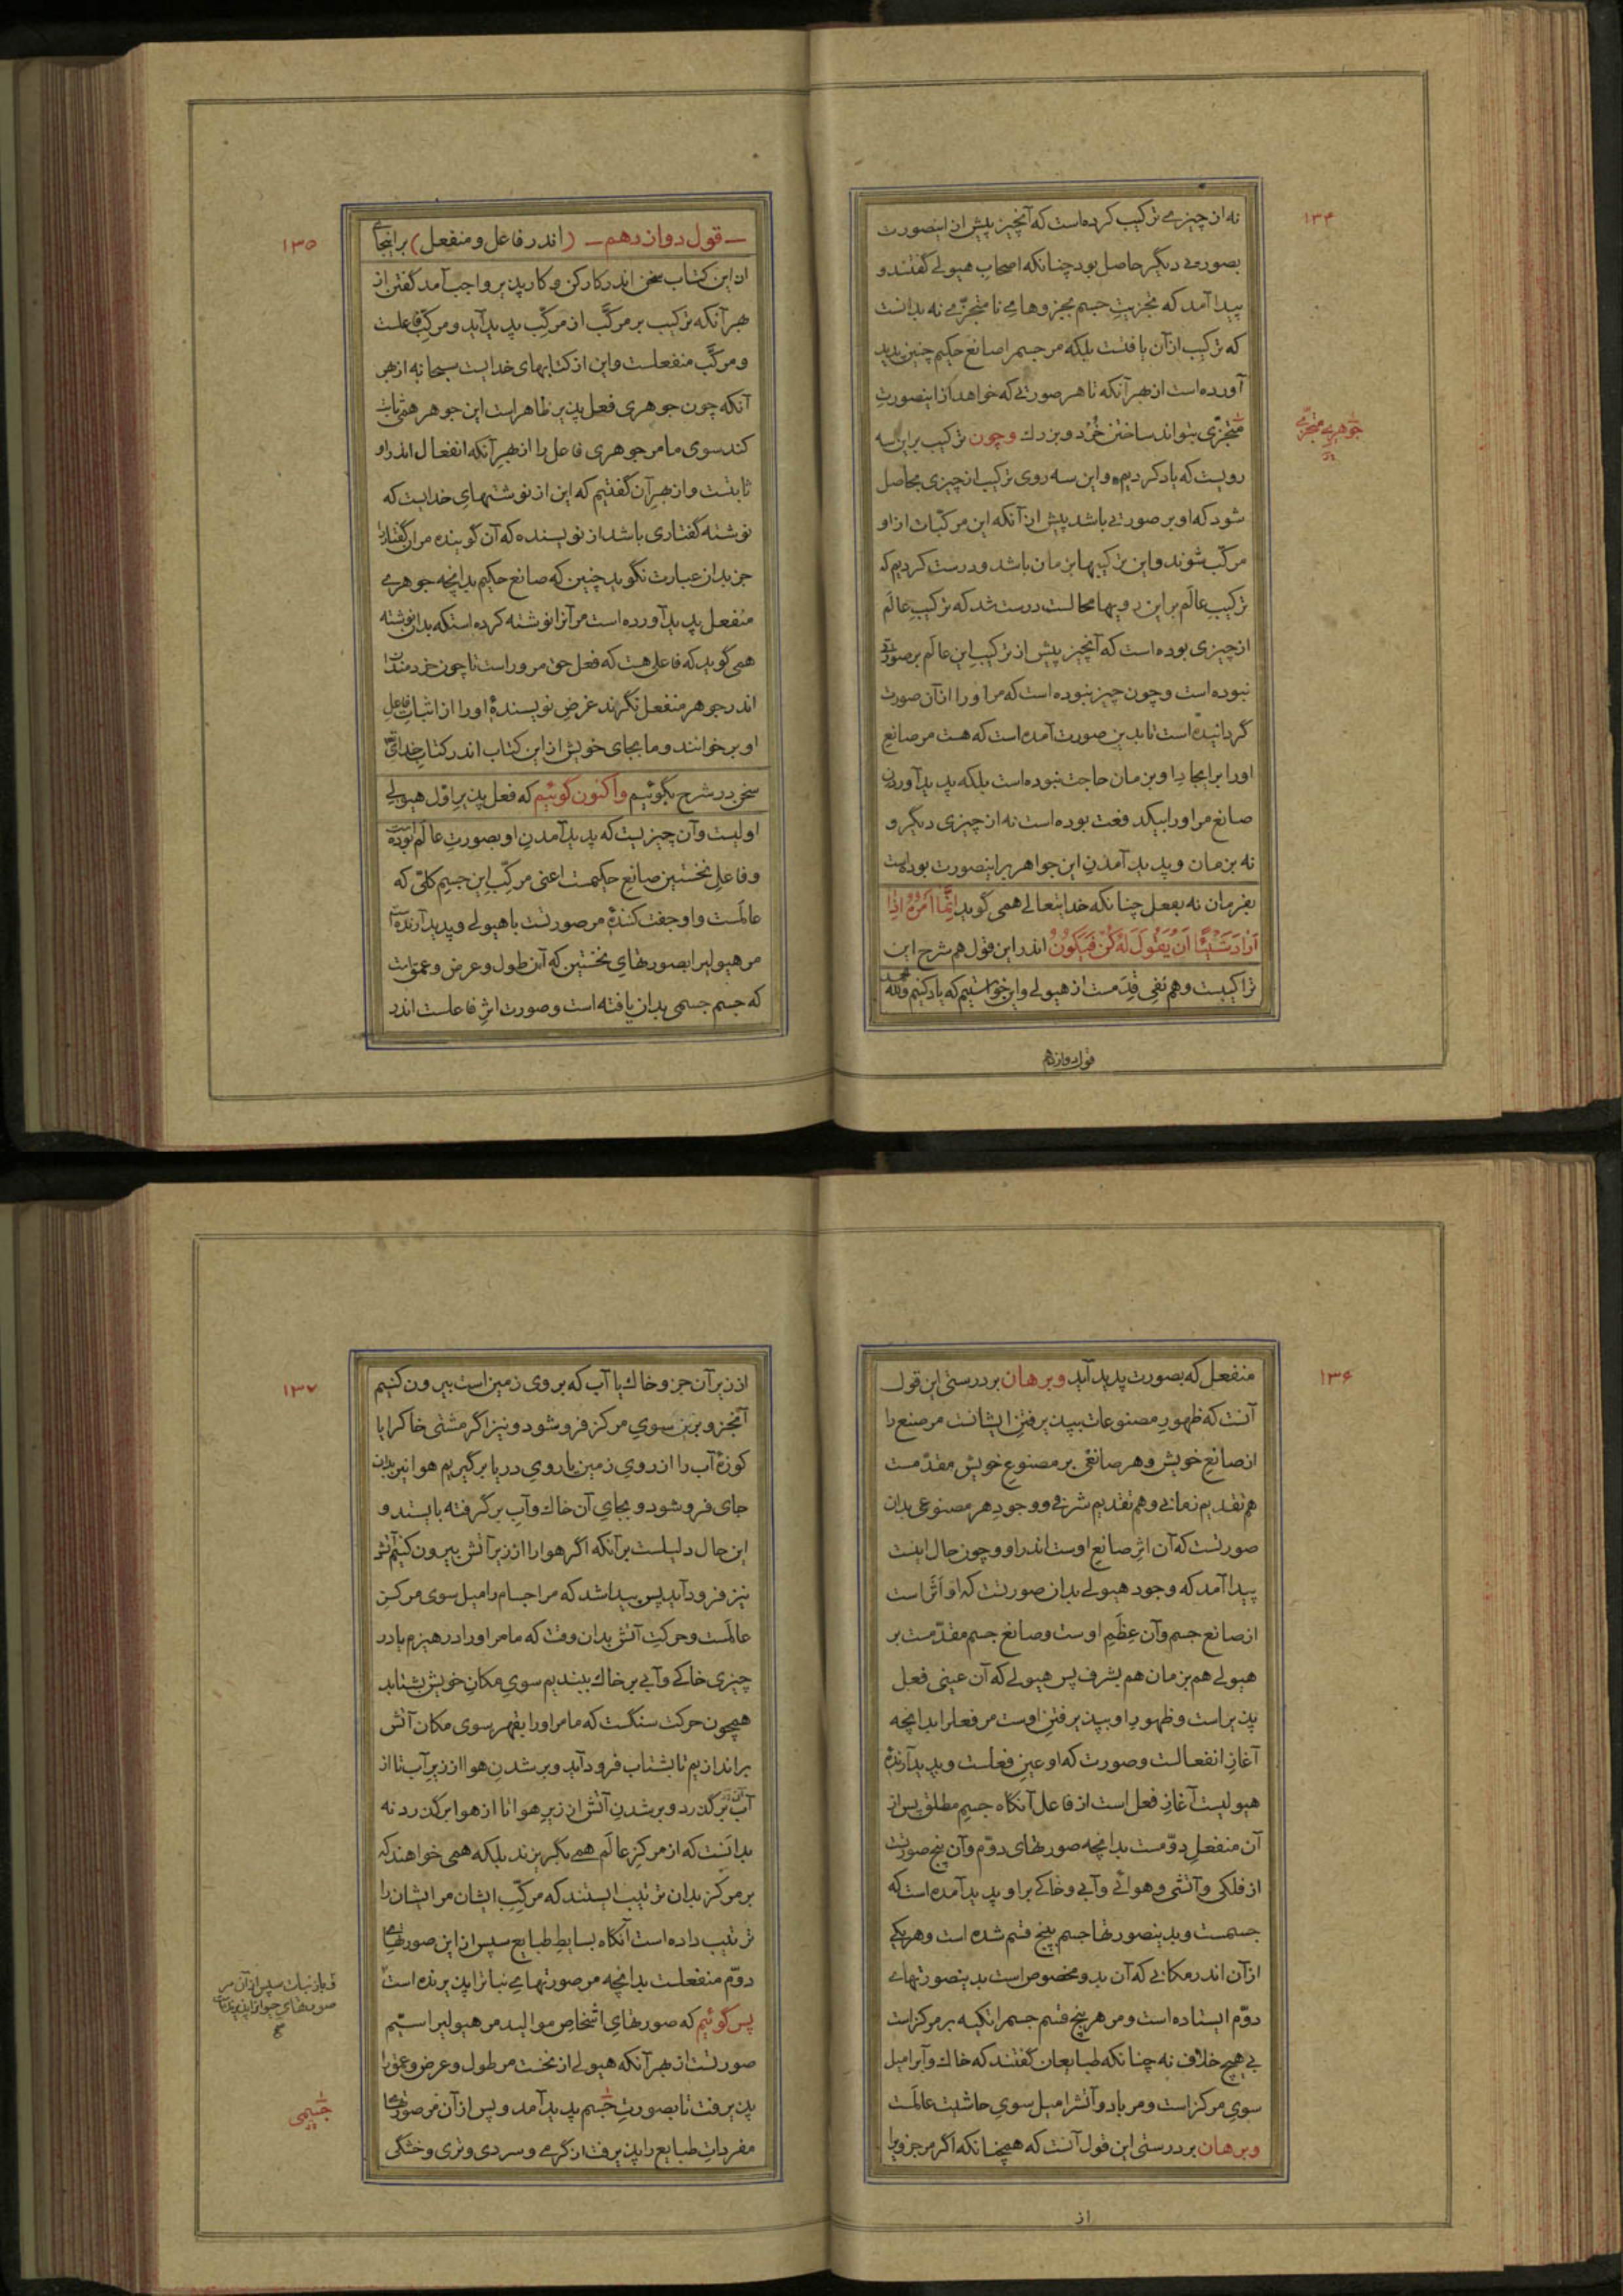 ۱۳۴
نه از چیزی ترکیب کرده است که آنچیز پیش از اینصورت
بصورتی دیگر حاصل بود چنانکه اصحاب هیولی گفتند و
پیدا آمد که تجزیت جسم بجزوهای نا متجزّی نه بدانست
که ترکیب از آن یافتست بلکه مر جسم را صانع حکیم چنین پدید
آورده است از بهر آنکه تا هر صورتی که خواهد از اینصورتِ
متجزّی بتواند ساختن خُرد و بزرك وچون ترکیب بر این سه
جوهری متجزّی
رویست که یاد کردیم و این سه روی ترکیب از چیزی بحاصل
شود که او بر صورتی باشد پیش از آنکه این مرکّبات از او
مرکّب شوند و این ترکیبها بزمان باشد و درست کردیم که
ترکیبِ عالَم بر این رویها محالست درست شد که ترکیبِ عالَم
از چیزی بوده است که آنچیز پیش از ترکیبِ این عالَم بر صورتی
نبوده است و چون چیز نبوده است که مر او را از آن صورت
گردانیده است تا بدین صورت آمده است که هست مر صانعِ
اورا بر ایجادِ او بزمان حاجت نبوده است بلکه پدید آوردن
صانع مر او را بیکدفعت بوده است نه از چیزی دیگر و
نه بزمان و پدید آمدنِ این جواهر بر اینصورت بوده است
بفرمان نه بفعل چنانکه خدایتعالی همی گوید اِنَّمٰا اَمْرُهُ اِذٰا
اَرٰادَ شَیْئًا اَنْ یَقُولَ لَهُ کُنْ فَیَکُونُ اندر این قول هم شرح این
تراکیبست و هم نفیِ قِدَمست از هیولی و این خواستیم که یاد کنیم و لله الحمد
قول دوازدهم
۱۳۵
ـ قول دوازدهم ـ (اندر فاعل و منفعل) بر اینجای
از این کتاب سخن اندر کارکن و کارپذیر واجب آمد گفتن از
بهر آنکه ترکیب بر مرکَّب از مرکِّب پدید آید و مرکِّب فاعلست
و مرکَّب منفعلست و این از کتابهای خدایست سبحانه از بهر
آنکه چون جوهری فعل پذیر ظاهر است این جوهر همی ثابت
کند سوی ما مر جوهری فاعل را از بهر آنکه انفعال اندر او
ثابتست و از بهر آن گفتیم که این از نوشتهای خدایست که
نوشته گفتاری باشد از نویسنده که آن گوینده مر آن گفتار را
جز بدان عبارت نگوید چنین که صانع حکیم بدانچه جوهری
منفعل پدید آورده است مر آنرا نوشته کرده استکه بدان نوشته
همی گوید که فاعلی هست که فعل حق مر وراست تا چون خردمندان
اندر جوهر منفعل نگرند غرضِ نویسندهٔ او را از اثباتِ فاعلِ
او بر خوانند و ما بجای خویش از این کتاب اندر کتابِ خدای
سخن در شرح بگوئیم واکنون گوئیم که فعل پذیرِ اوّل هیولیِ
اولیست و آن چیزیست که پدید آمدنِ او بصورتِ عالَم بوده است
و فاعلِ نخستین صانعِ حکیمست اعنی مرکِّبِ این جسمِ کلّی که
عالَمست و او جفت کنندهٔ مر صورتست با هیولی و پدید آرندهٔ
مر هیولیرا بصورتهایِ نخستین که آن طول و عرض و عمقست
که جسم جسمی بدان یافته است و صورت اثرِ فاعلست اندر
۱۳۶
منفعل که بصورت پدید آید وبرهان بر درستی این قول
آنست که ظهورِ مصنوعات بپذیرفتنِ ایشانست مر صنع را
از صانعِ خویش و هر صانعی بر مصنوعِ خویش مقدّمست
هم تقدیم زمانی و هم تقدیم شرفی و وجودِ هر مصنوعی بدان
صورتست که آن اثرِ صانع اوست اندر او و چون حال اینست
پیدا آمد که وجودِ هیولی بدان صورتست که او اَثَر است
از صانع جسم و آن عِظَمِ اوست و صانع جسم مقدّمست بر
هیولی هم بزمان هم بشرف پس هیولی که آن عینی فعل
پذیر است و ظهورِ او بپذیرفتنِ اوست مر فعل را بدانچه
آغاز انفعالست و صورت که او عینِ فعلست و پدید آرندهٔ
هیولیست آغازِ فعل است از فاعل آنگاه جسمِ مطلق پس از
آن منفعلِ دوّمست بدانچه صورتهای دوّم و آن پنج صورتست
از فلکی و آتشی و هوائی و آبی و خاکی بر او پدید آمده است که
جسمست و بدینصورتها جسم بپنج قسم شده است و هر یکی
از آن اندر مکانی که آن بدو مخصوص است بدینصورتهای
دوّم ایستاده است و مر هر پنج قسم جسم را تکیه بر مرکز است
بی هیچ خلاف نه چنانکه طبایعان گفتند که خاك و آب را میل
سویِ مرکز است و مر باد و آتش را میل سویِ حاشیتِ عالَمست
وبرهان بر درستی این قول آنست که همچنانکه اگر مر جزویرا
از
۱۳۷
از زیرِ آن جزوِ خاك یا آب که بر روی زمین است بیرون کنیم
آنجزوِ برین سویِ مرکز فرو شود و نیز اگر مشتی خاك را یا
کوزهٔ آب را از رویِ زمین یا رویِ دریا بر گیریم هوا نیز بدان
جای فرو شود و بجایِ آن خاك و آبِ بر گرفته بایستد و
این حال دلیلست بر آنکه اگر هوا را از زیر آتش بیرون کنیم آتش
نیز فرود آید پس پیدا شد که مر اجسام را میل سوی مرکزِ
عالَمست و حرکتِ آتش بدان وقت که ما مر او را در هیزم یا در
چیزی خاکی و آبی بر خاك ببندیم سویِ مکانِ خویش بشتابد
همچون حرکت سنگست که ما مر او را بقهر سوی مکان آتش
بر اندازیم تا بشتاب فرود آید و بر شدنِ هوا از زیرِ آب تا از
آب بر گذرد و بر شدنِ آتش از زیرِ هوا تا از هوا بر گذرد نه
بدانست که از مرکزِ عالَم همی بگریزند بلکه همی خواهند که
بر مرکز بدان ترتیب ایستند که مرکِّبِ ایشان مر ایشان را
ترتیب داده است آنگاه بسایطِ طبایع سپس از این صورتهای
دوّم منفعلست بدانچه مر صورتهای نباترا پذیرنده است
و باز نبات سپس از آن مر
صورتهایِ حیوانرا پذیرنده است
صح
پس گوئیم که صورتهایِ اشخاصِ موالید مر هیولیرا سیّم
صورتست از بهر آنکه هیولی از نخست مر طول و عرض و عمق را
پذیرفت تا بصورتِ جسم پدید آمد و پس از آن مر صورتهای
جسمی
مفرداتِ طبایع را پذیرفت از گرمی و سردی و تری و خشکی